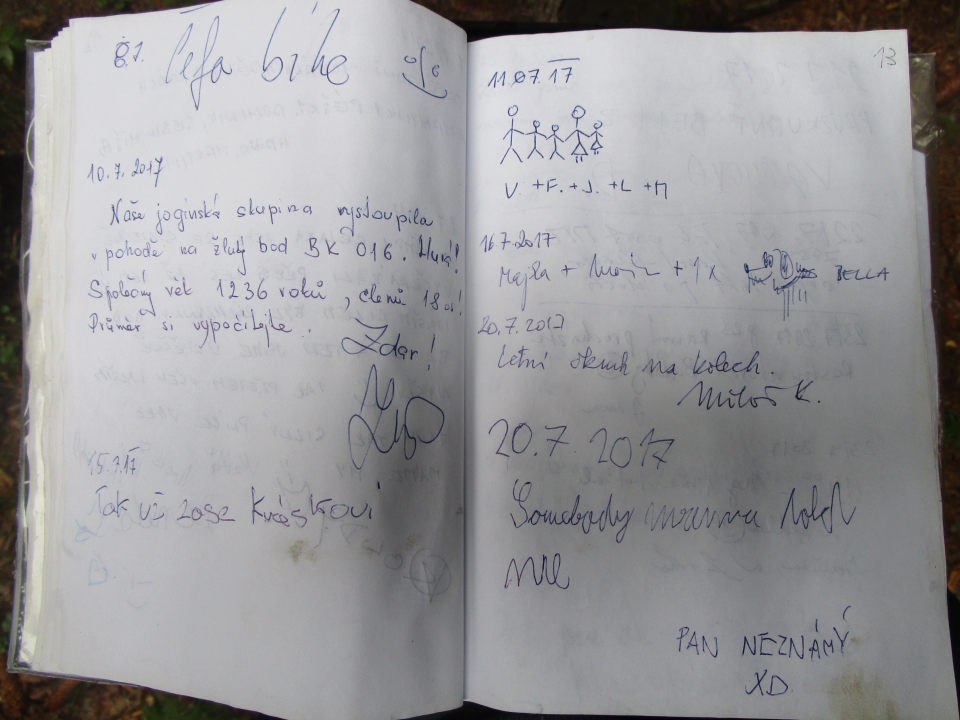 8.7. Péťa bike
10.7.2017
Naše jogínská skupina vystoupila
v pohodě na žlutý bod BK 016. Hurá!
Společný věk 1236 roků, členů 18 os!
Průměr si vypočítejte.
Zdar!
15.7.17
Tak už zase Kráskovi
13
11.07.17
V + F. + J. + L + M
16.7.2017
+ 1x BELLA
20.7.2017
Letní škruh na kolech.
Miloš K.
20.7.2017
Somebody wanna told
me
PAN NEZNÁMÝ
XD